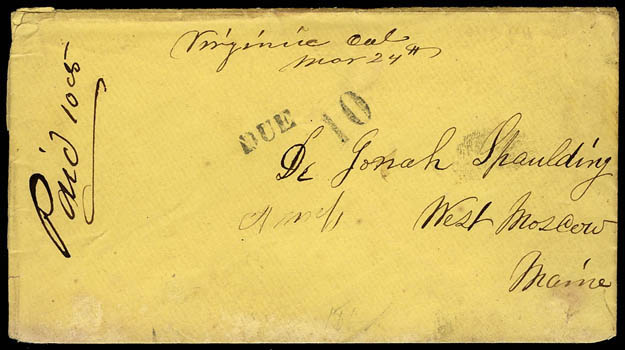 Virginia Cal
Mar 24th
Paid 10cts
DUE 10
Dr Jonah Spaulding
West Moscow
Maine